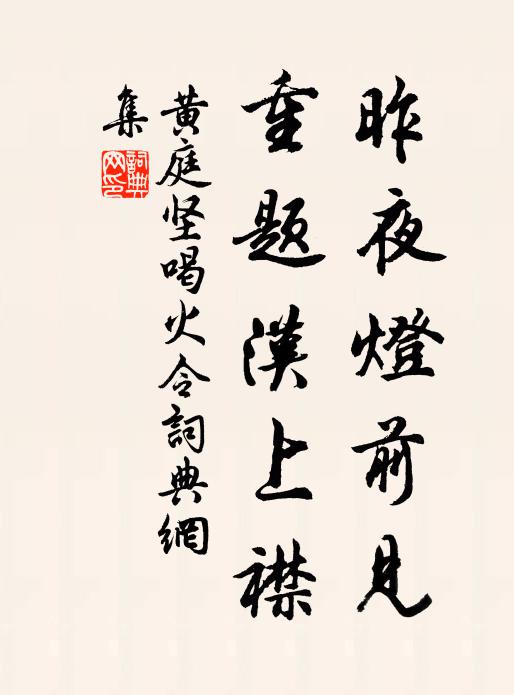 昨夜燈前見
重題漢上襟
黄庭坚喝火令詞典網
集
詞典
网印